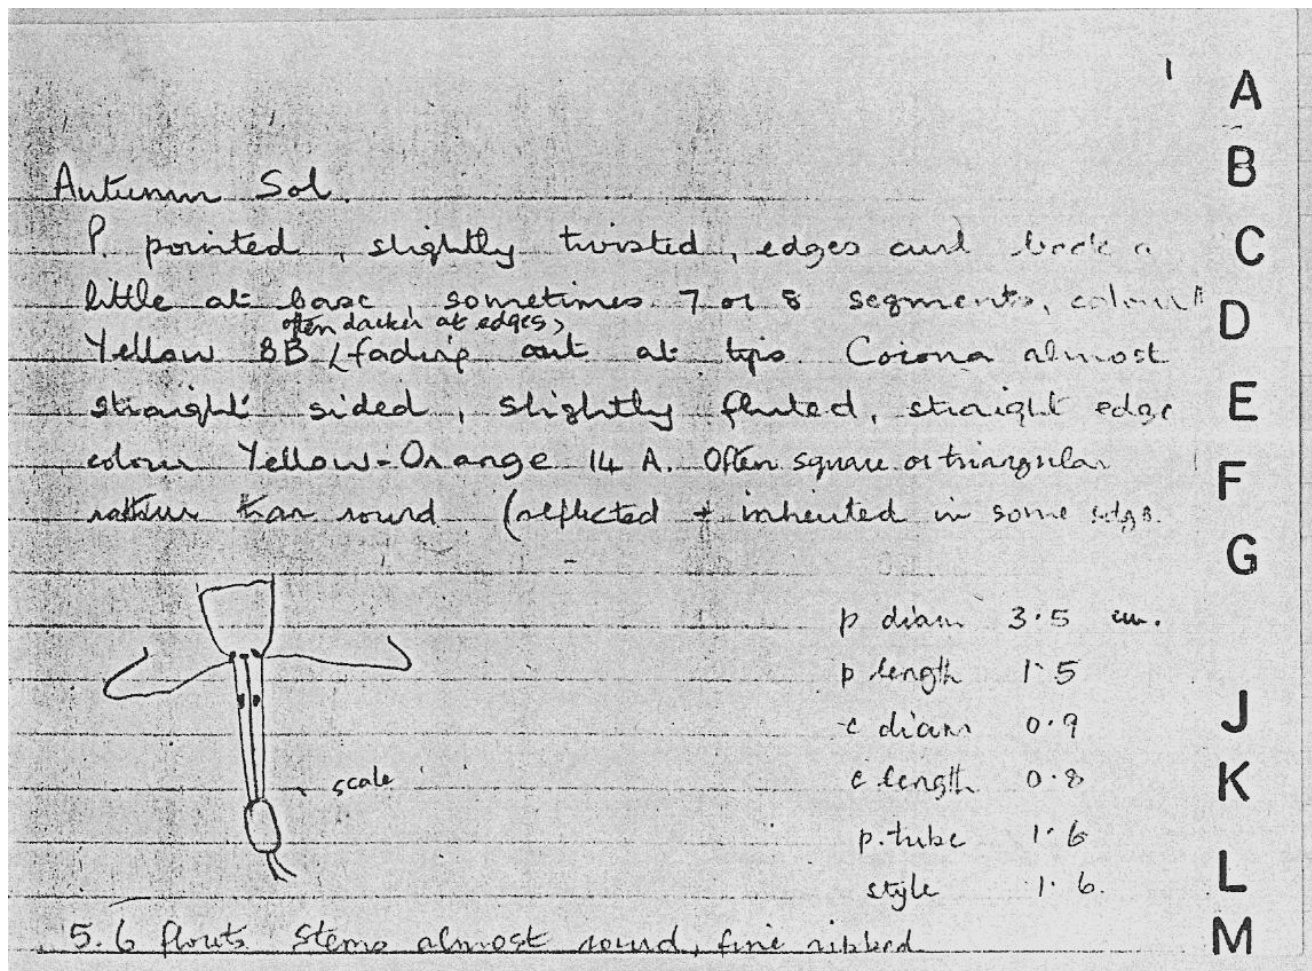 1
A
B
Autumn Sol.
P. pointed, slightly twisted, edges curl back a
C
little at base, sometimes 7 or 8 segments, colour
D
often darker at edges,
Yellow 8B fading out at tips. Corona almost
straight sided, slightly fluted, straight edge
E
colour Yellow-Orange 14 A. Often square or triangular
F
rather than round (reflected + inherited in some
G
p diam 3.5 cm.
p length 1.5
c diam 0.9
J
c length 0.8
K
scale
p. tube 1.6
style 1.6.
L
5.6 Stems almost round, fine ribbed
M